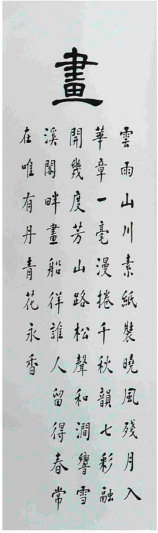 畫
雲雨山川素紙裝曉風殘月入
華章一毫漫捲千秋韻七彩融
開幾度芳山路松聲和澗響雪
溪閣畔畫船徉誰人留得春常
在唯有丹青花永香